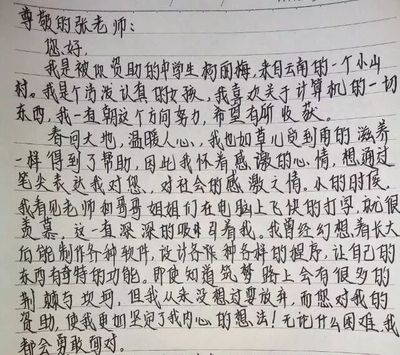 尊敬的张老师:
您好,
我是被你资助的中学生杨丽梅,来自云南的一个小山
村。我是个活泼认真的女孩,我喜欢关于计算机的一切
东西,我一直朝这个方向努力,希望有所收获。
春回大地,温暖人心,我也如草儿受到雨的滋养
一样得到了帮助,因此我怀着感激的心情,想通过
笔尖表达我对您、对社会的感激之情。小的时候,
我看见老师和哥哥姐姐们在电脑上飞快的打字,就很
羡慕,这一直深深的吸引着我。我曾经幻想着长大
后能制作各种软件,设计各种各样的程序,让自己的
东西有奇特的功能。即使知道筑梦路上会有很多的
荆棘与坎坷,但我从未没想过要放弃,而您对我的
资助,使我更加坚定了我内心的想法!无论什么困难,我
都会勇敢面对。